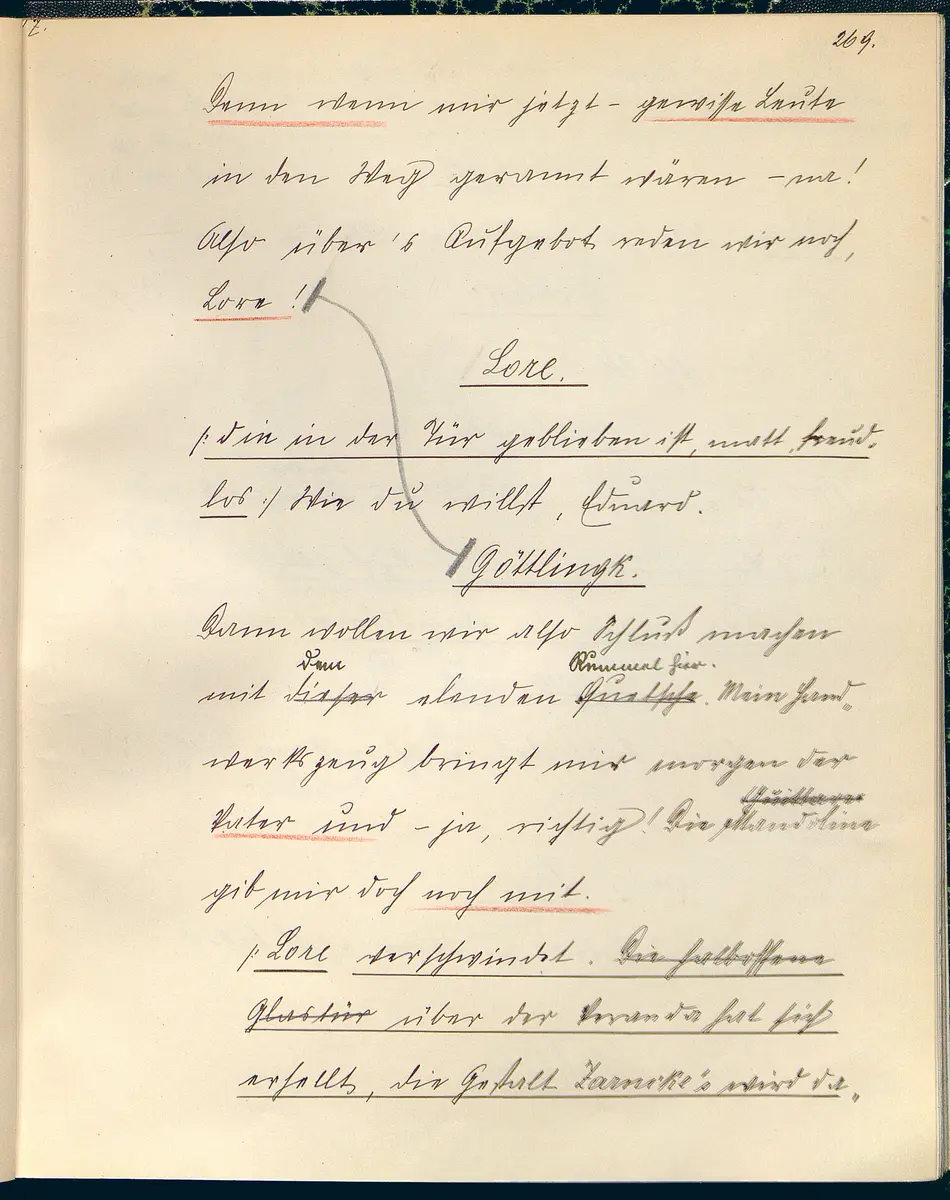 269.
Denn wenn mir jetzt – gewisse Leute
in den Weg gerannt wären – na!
Also über's Aufgebot reden wir noch,
Lore!
Lore.
/: die in der Tür geblieben ist, matt, freud-
los :/ Wie du willst, Eduard.
Göttlingk.
Dann wollen wir also Schluß machen
dem Rummel hier.
mit dieser elenden Quetsche. Mein Hand-
werkszeug bringt mir morgen der
Guittare
Vater und – ja, richtig! Die Mandoline
gib mir doch noch mit.
/: Lore verschwindet. Die halboffene
Glastür über der Veranda hat sich
erhellt, die Gestalt Zarncke's wird da-